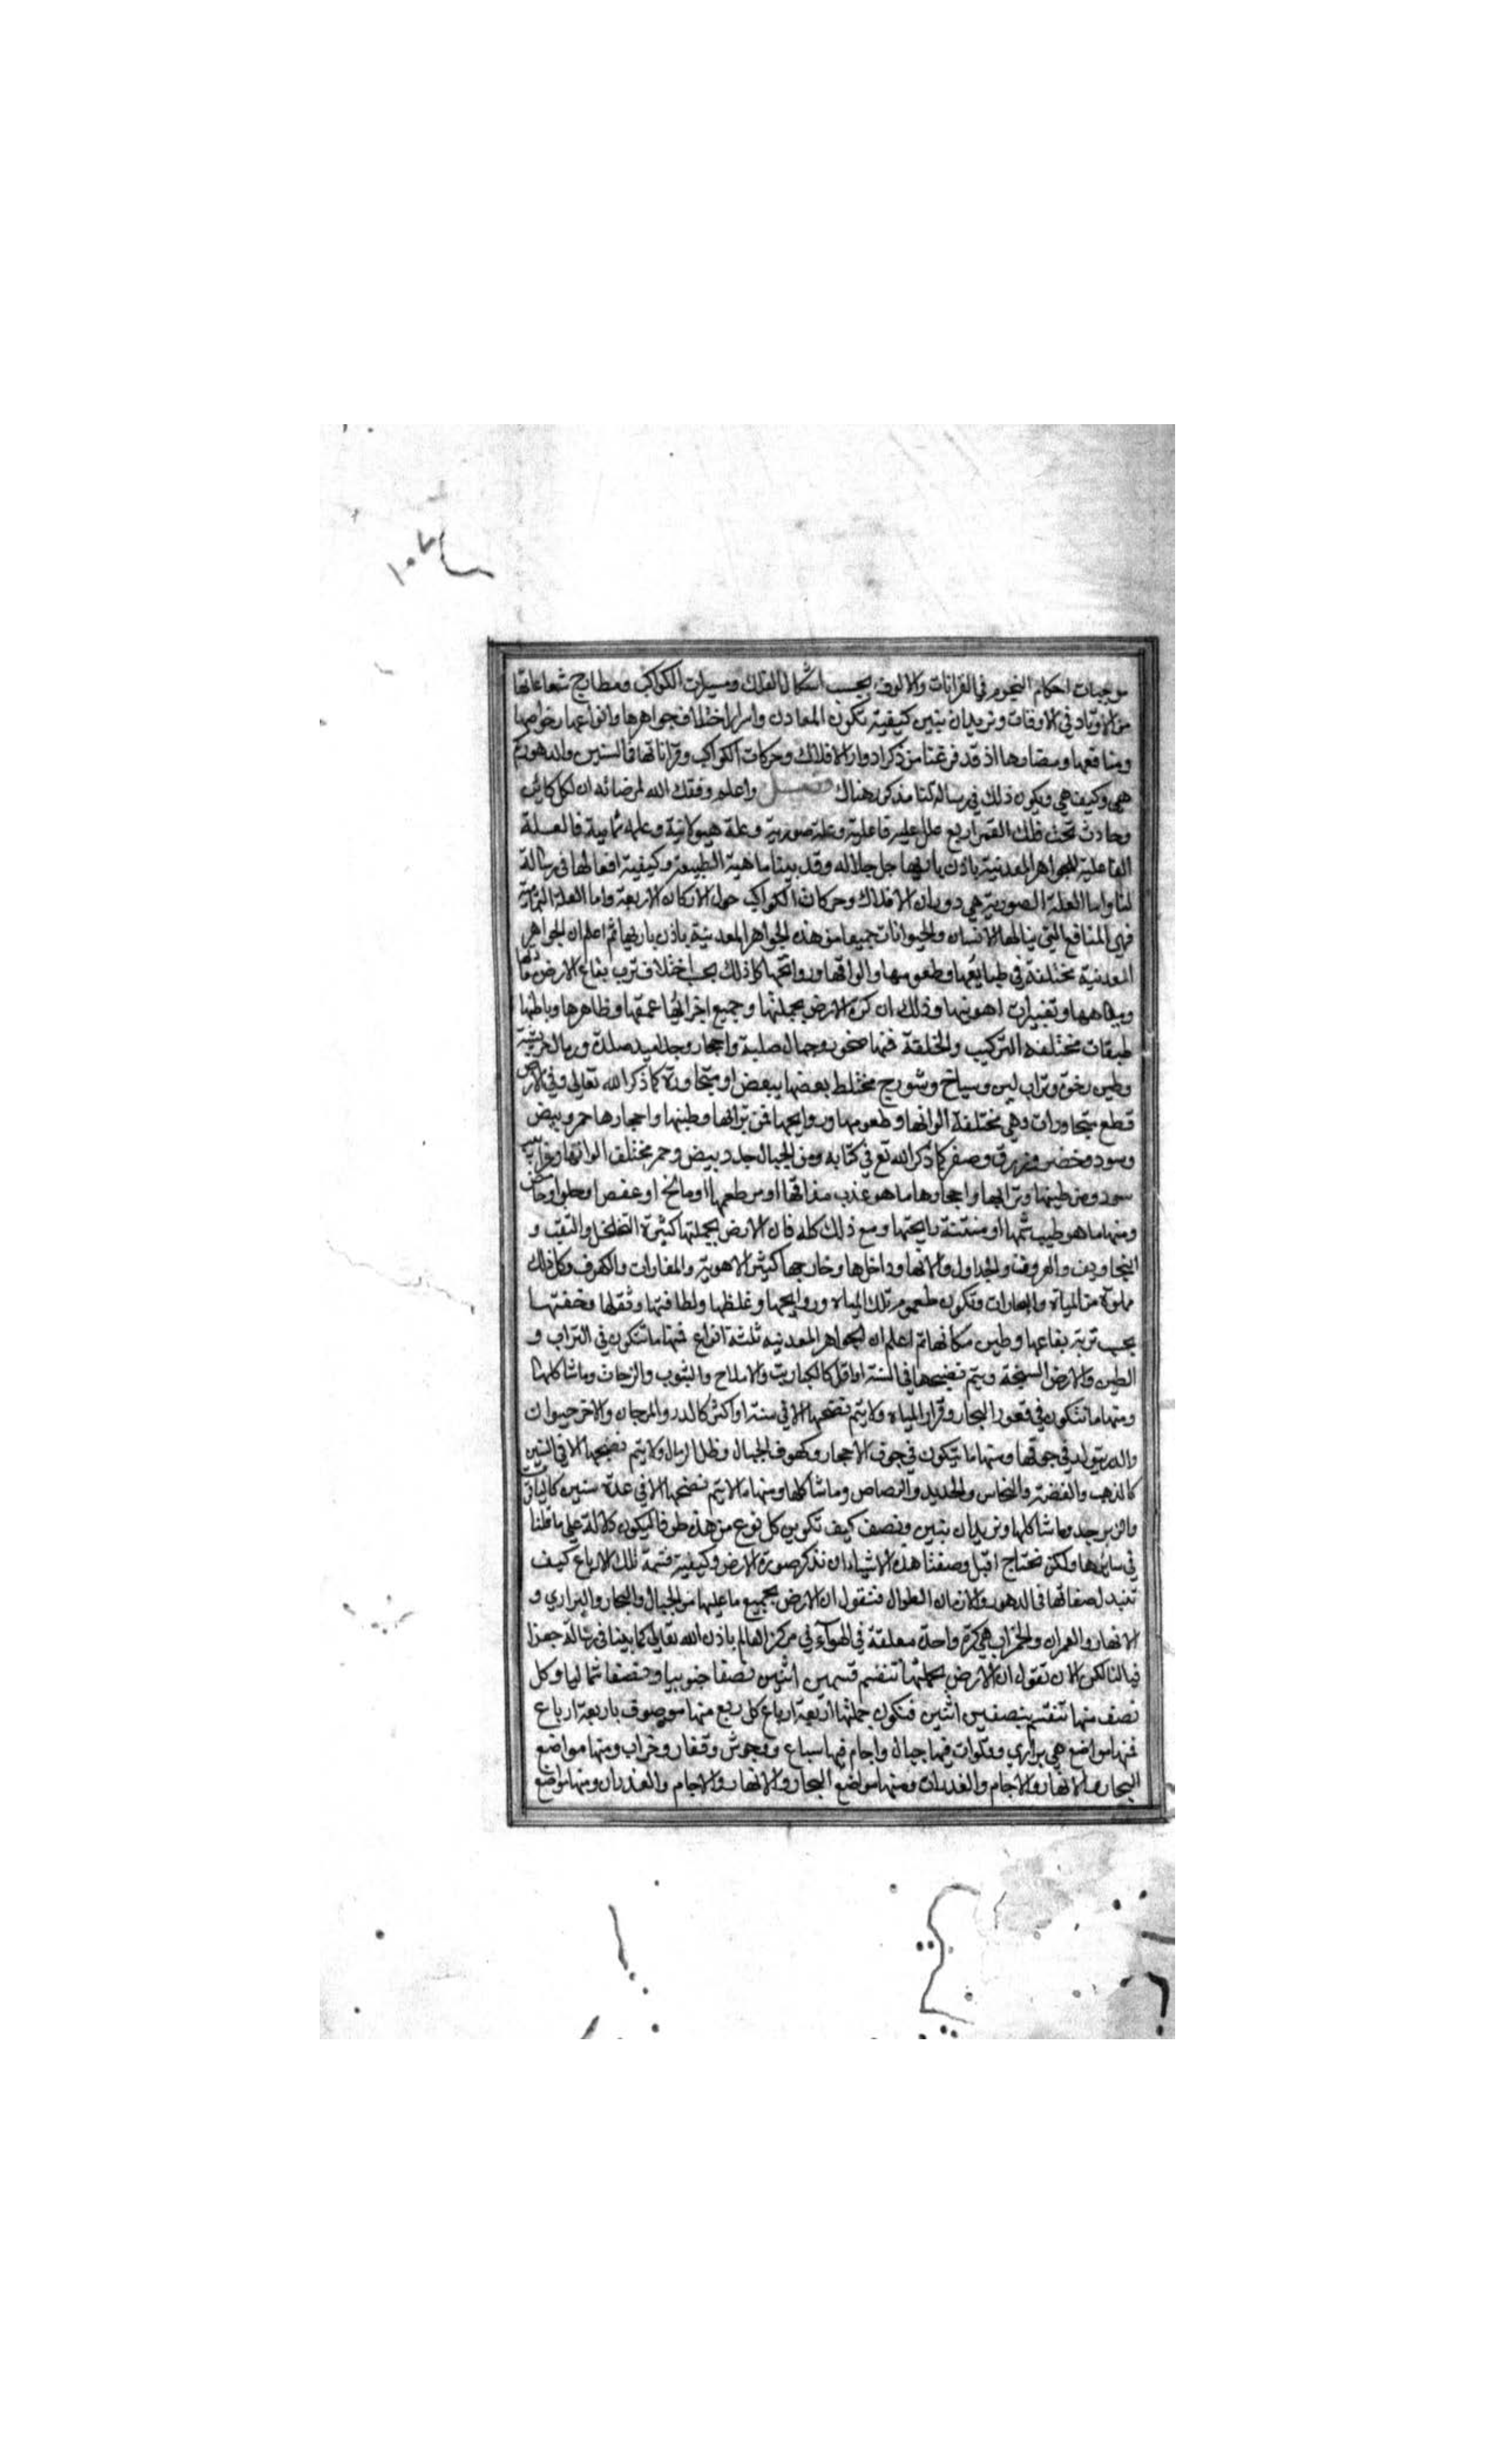 موجبات احكام النجوم في القرانات والالوف بحسب اشكال الفلك ومسيرات الكواكب ومطارح شعاعاتها
من الاوتاد في الاوقات ونريد ان نبين كيفية تكون المعادن واسرار اختلاف جواهرها وانواعها وخواصها
ومنافعها ومضارها اذ قد فرغنا من ذكر ادوار الافلاك وحركات الكواكب وقراناتها في السنين والدهور كم
هي وكيف هي ويكون ذلك في رسالتنا مذكور هناك فصل واعلم وفقك الله لمرضاته ان لكل كائن
وحادث تحت فلك القمر اربع علل علة فاعلية وعلة صورية وعلة هيولانية وعلة تمامية فالعلة
الفاعلية للجواهر المعدنية باذن باريها جل جلاله وقد بينا ماهية الطبيعة وكيفية افعالها في رسالة
لنا واما العلة الصورية هي دوران الافلاك وحركات الكواكب حول الاركان الاربعة واما العلة التمامية
فهي المنافع التي ينالها الانسان والحيوانات جميعا من هذه الجواهر المعدنية باذن باريها ثم اعلم ان الجواهر
المعدنية مختلفة في طبايعها وطعومها والوانها وروائحها كل ذلك بحسب اختلاف ترب بقاع الارض
ومياهها وتغييرات اهويتها وذلك ان كرة الارض بجملتها وجميع اجزائها عمقها وظاهرها وباطنها
طبقات مختلفة التركيب والخلقة فمنها صخور وجبال صلبة واحجار وجلاميد صلدة ورمال جريشة
وطين رخوة وتراب لين وسباخ وشورج مختلط بعضها ببعض او متجاورة كما ذكر الله تعالى وفي الارض
قطع متجاورات وهي مختلفة الوانها وطعومها وروايحها فمن ترابها وطينها واحجارها حمر وبيض
وسود وخضر وزرق وصفر كما ذكر الله تع في كتابه ومن الجبال جدد بيض وحمر مختلف الوانها وغرابيب
سود ومن طينها وترابها واحجارها ما هو عذب مذاقها او مر طعمها او مالح او عفص او حلو او حامض
ومنها ما هو طيب شمها او منتنة رايحتها ومع ذلك كله فان الارض بجملتها كثيرة التخلخل والثقب و
التجاويف والعروق والجداول والانهار وداخلها وخارجها كثير الاهوية والمغارات والكهوف وكل ذلك
مملوة من المياه والبخارات وتكون طعوم تلك المياه وروايحها وغلظها ولطافتها وثقلها وخفتها
بحسب تربة بقاعها وطين مكانها ثم اعلم ان الجواهر المعدنيه ثلثة انواع فمنها ما تتكون في التراب و
الطين والارض السبخة ويتم نضجها في السنة او اقل كالكباريت والاملاح والشبوب والزاجات وما شاكلها
ومنها ما تتكون في قعور البحار وقرار المياه ولا يتم نضجها الا في سنة او اكثر كالدر والمرجان والاخر حيوان
والدر يتولد في جوفها ومنها ما يتكون في جوف الاحجار وكهوف الجبال وخلل الرمال ولا يتم نضجها الا في السنين
كالذهب والفضة والنحاس والحديد والرصاص وما شاكلها ومنها ما لا يتم نضجها الا في عدة سنين كالياقوت
والزبرجد وما شاكلها ونريد ان نبين ونصف كيف تكوين كل نوع من هذه طرفا ليكون دلالة على باقلنا
في سائرها ولكن نحتاج قبل وصفنا هذه الاشياء ان نذكر صورة الارض وكيفية قسمة تلك الارباع كيف
تتبدل صفاتها في الدهور والازمان الطوال فنقول ان الارض بجميع ما عليها من الجبال والبحار والبراري و
الانهار والعمران والخراب هي كرة واحدة معلقة في الهواء في مركز العالم باذن الله تعالى كما بينا في رسالة جغرا
فيا لنا لكن الان نقول ان الارض بجملتها تنقسم قسمين اثنين نصفا جنوبيا ونصفا شماليا وكل
نصف منها تنقسم بنصفين اثنين فتكون جملتها اربعة ارباع كل ربع منها موصوف باربعة ارباع
فمنها مواضع هي براري وفلوات فيها جبال واجام فيها سباع ووحوش وقفار وخراب ومنها مواضع
البحار والانهار والاجام والغدران ومنها مواضع البحار والانهار والاجام والغدران ومنها مواضع